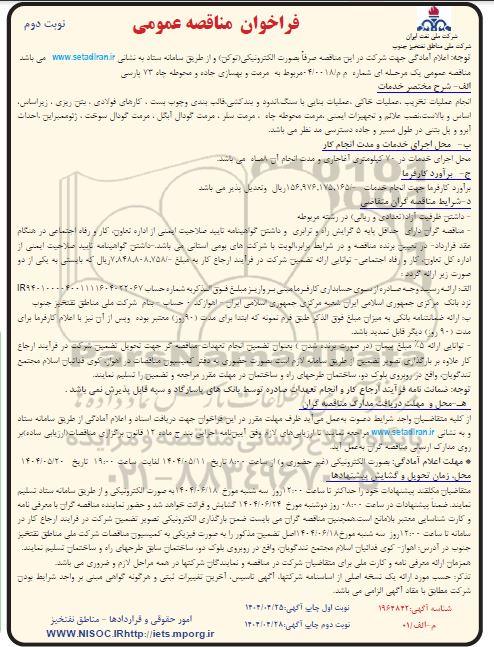 فراخوان مناقصه عمومی
نوبت دوم
شرکت ملی نفت ایران
شرکت ملی مناطق نفتخیز جنوب
توجه: اعلام آمادگی جهت شرکت در این مناقصه صرفاً بصورت الکترونیکی(توکن) و از طریق سامانه ستاد به نشانی www.setadiran.ir می باشد
مناقصه عمومی یک مرحله ای شماره م م/۰۴/۰۰۱۸مربوط به مرمت و بهسازی جاده و محوطه چاه ۷۳ پارسی
الف- شرح مختصر خدمات
انجام عملیات تخریب ،عملیات خاکی ،عملیات بنایی با سنگ،اندود و بندکشی،قالب بندی وچوب بست ، کارهای فولادی ، بتن ریزی ، زیراساس،
اساس و بالاست،نصب علائم و تجهیزات ایمنی ،مرمت محوطه چاه ، مرمت سلر ، مرمت گودال آبگل ، مرمت گودال سوخت ، ژئوممبراین ،احداث
آبرو و پل بتنی در طول مسیر و جاده دسترسی مد نظر می باشد.
ب- محل اجرای خدمات و مدت انجام کار
محل اجرای خدمات در ۷۰ کیلومتری آغاجاری و مدت انجام آن ۸ماه می باشد.
ج- برآورد کارفرما
برآورد کارفرما جهت انجام خدمات ۱۵۶,۹۷۶,۱۷۵,۱۶۵/-ریال وتعدیل پذیر می باشد
د-شرایط مناقصه گران متقاضی
- داشتن ظرفیت آزاد(تعدادی و ریالی) در رشته مربوطه
- مناقصه گران دارای حداقل پایه ۵ گرایش راه و ترابری و داشتن گواهینامه تایید صلاحیت ایمنی از اداره تعاون، کار و رفاه اجتماعی در هنگام
عقد قرارداد- در تعیین برنده مناقصه و در شرایط برابر،الویت با شرکت های بومی استانی می باشد-داشتن گواهینامه تایید صلاحیت ایمنی از
اداره کل تعاون، کار و رفاه اجتماعی- توانایی ارائه تضمین شرکت در فرآیند ارجاع کار به مبلغ /۷,۸۴۸,۸۰۸,۷۵۸ریال که بایستی به یکی از دو
صورت زیر ارائه گردد :
الف: ارائه رسید وجه صادره از سوی حسابداری کارفرما مبنی بر واریز مبلغ فوق الذکربه شماره حساب IR۹۴۰۱۰۰۰۰۴۰۰۱۱۱۱۶۰۴۰۲۲۰۶۷
نزد بانک مرکزی جمهوری اسلامی ایران شعبه مرکزی جمهوری اسلامی ایران - اهوازکد ۰ حساب - بنام شرکت ملی مناطق نفتخیز جنوب
ب: ارائه ضمانتنامه بانکی به میزان مبلغ فوق الذکر طبق فرم نمونه که ابتدا برای مدت (۹۰ روز) معتبر بوده وپس از آن نیز با اعلام کارفرما برای
مدت (۹۰ روز) دیگر قابل تمدید باشد.
- توانایی ارائه ۵٪ مبلغ پیمان (در صورت برنده شدن ) بعنوان تضمین انجام تعهدات مناقصه گر جهت تحویل تضمین شرکت در فرآیند ارجاع
کار علاوه بر بارگذاری تصویر تضمین از طریق سامانه لازم است بصورت حضوری به دفتر کمیسیون مناقصات در اهواز، کوی فدائیان اسلام مجتمع
تندگویان، واقع در روبروی بلوک دو، ساختمان طرحهای راه و ساختمان در مهلت مقرر مراجعه و تضمین را تسلیم نمایند.
توجه: ضمانت نامه فرآیند ارجاع کار و انجام تعهدات صادره توسط بانک های پاسارگاد و سپه قابل پذیرش نمی باشد .
هـ-محل و مهلت دریافت مدارک مناقصه گران
از کلیه متقاضیان واجد شرایط دعوت به عمل می آید ظرف مهلت مقرر در این فراخوان جهت دریافت اسناد و اعلام آمادگی از طریق سامانه ستاد
و به نشانی www.setadiran.ir مراجعه نمایند تا ارزیابی های لازم وفق آیین نامه اجرایی بند ج ماده ۱۲ قانون برگزاری مناقصات(ارزیابی ساده)بر
روی مدارک ارسالی مناقصه گران به عمل آید.
* مهلت اعلام آمادگی: بصورت الکترونیکی (غیر حضوری و) از ساعت ۸:۰۰ تاریخ ۱۴۰۴/۰۵/۱۱ لغایت ساعت ۱۹:۰۰ تاریخ ۱۴۰۴/۰۵/۲۰
محل، زمان تحویل و گشایش پیشنهادها
متقاضیان مکلفند پیشنهادات خود را حداکثر تا ساعت ۱۲:۰۰روز سه شنبه مورخ ۱۴۰۴/۰۶/۱۸ به صورت الکترونیکی و از طریق سامانه ستاد تسلیم
نمایند. ضمنا پیشنهادات در ساعت ۰۸:۰۰ روز دوشنبه مورخ ۱۴۰۴/۰۶/۲۴ گشایش و قرائت خواهد شد و حضور نماینده مناقصه گران با معرفی نامه
و کارت شناسایی معتبر بلامانع است.همچنین مناقصه گران می بایست ضمن بارگذاری الکترونیکی تصویر تضمین شرکت در فرآیند ارجاع کار در
سامانه تا ساعت ۱۲:۰۰روز سه شنبه مورخ ۱۴۰۴/۰۶/۱۸اصل تضمین مذکور را به صورت فیزیکی به کمیسیون مناقصات شرکت ملی مناطق نفتخیز
جنوب در آدرس: اهواز- کوی فدائیان اسلام مجتمع تندگویان، واقع در روبروی بلوک دو، ساختمان سابق طرحهای راه و ساختمان تسلیم نمایند.
همزمان ارائه معرفی نامه و کارت ملی برای متقاضیان شرکت در مناقصه و نمایندگان شرکتها در همه مراحل لازم و ضروری می باشد.
تذکر: حسب مورد ارائه یک نسخه اصلی از اساسنامه شرکتها، آگهی تاسیس، آخرین تغییرات ثبتی و هرگونه گواهی مبنی بر واجد شرایط بودن
شرکت مطابق با مفاد آگهی الزامی می باشد.
شناسه آگهی:۱۹۶۴۸۴۲
م-الف/۰۱
نوبت اول چاپ آگهی:۱۴۰۴/۰۴/۲۵
نوبت دوم چاپ آگهی:۱۴۰۴/۰۴/۲۸
امور حقوقی و قراردادها - مناطق نفتخیز
WWW.NISOC.IRhttp://iets.mporg.ir